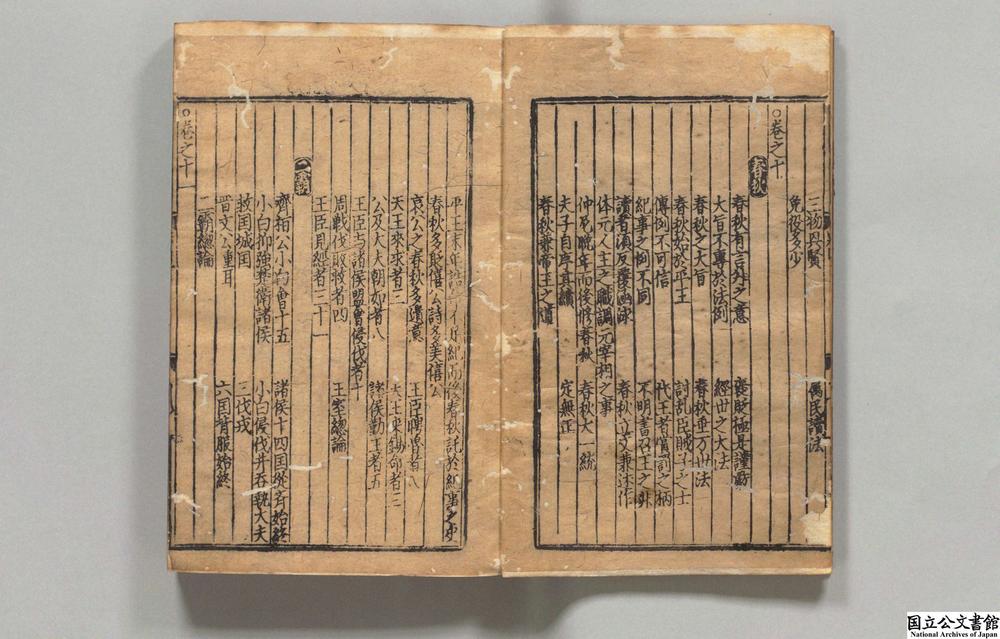 三物興賢 萬民讀法
免役多少
○卷之十
春秋
春秋有言外之意 褒貶極是謹嚴
大旨不專於法例 經世之大法
春秋之大旨 春秋垂万世法
春秋始於平王 討乱臣賊子之士
傳例不可信 代王者賞罰之柄
紀事之例不同 不明書召王之非
讀者須反覆幽詠 春秋立言兼述作
体元人主之職調元宰相之事
仲尼晚年而後修春秋 春秋大一統
夫子自序其績 定無正
春秋兼帝王之道
平王末年 春秋託於紀事之史
春秋多貶僖公詩多美僖公
哀公之春秋多遺意 王臣聘魯者八
天王來求者三 天王來錫命者三
公及大夫朝如者八 諸侯勤王者五
王臣与諸侯盟會侵伐者十
周戰伐敗救者四 王室總論
王臣見經者三十一
○卷之十一
二霸
齊桓公小白會十五 諸侯十四国從齊始終
小白抑強楚衛諸侯 小白侵伐并吞執大夫
救囯城囯 三伐戎
晋文公重耳 六囯背服始終
二霸總論
国立公文書館
National Archives of Japan